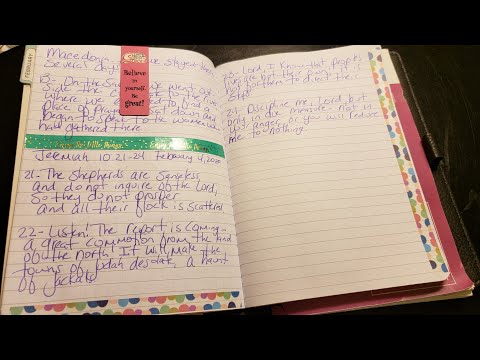 FEBRUARY
Macedon
several days
Believe
in
yourself.
Be
great!
13- On the
side the
where we expected to find a
place of prayer down and
began to speak to the women who
had gathered there
Enjoy the little things
Jeemiah 10:21-24 February 4, 2020
21- The Shepherds are senseless
and do not inquire of the Lord,
So they do not prosper
and all their flock is scattered
22- Listen! The report is coming-
a great commotion from the land
of the north! It will make the
towns of Judah desolate, a haunt
of jackals
23- Lord, I know that people's
lives are not their own; it is
not for them to direct their
steps
24- Discipline me, Lord but
only in due measure- not in
your anger, or you will reduce
me to nothing.